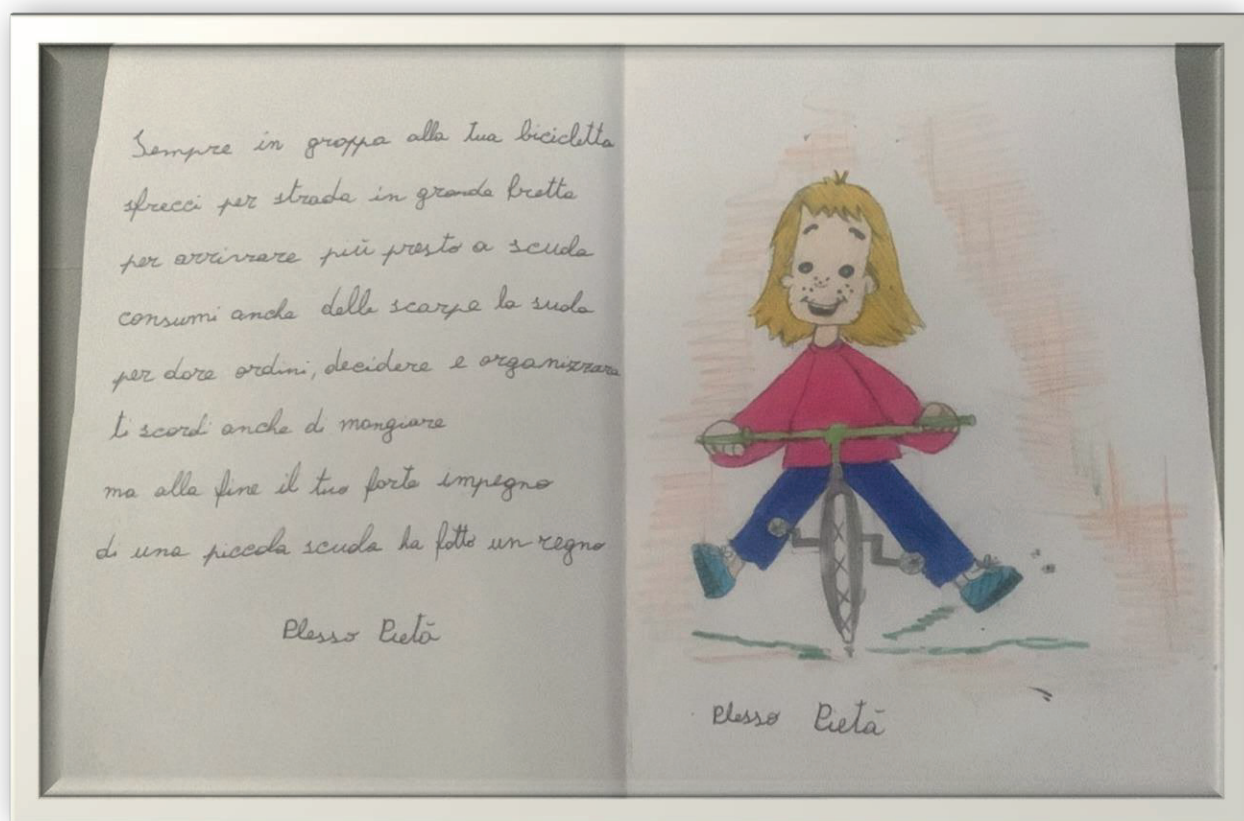 Sempre in groppa alla tua bicicletta
sfrecci per strada in grande fretta
per arrivare più presto a scuola
consumi anche delle scarpe la suola
per dare ordini, decidere e organizzare
ti scordi anche di mangiare
ma alla fine il tuo forte impegno
di una piccola scuola ha fatto un regno
Plesso Pietà
Plesso Pietà